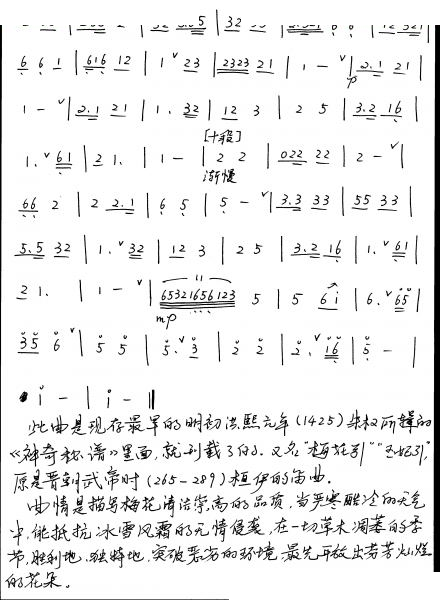 6 6 1 | 616 12 | 1 ˅ 23 | 2323 21 | 1 - ˅ | 2.1 21 |
p
1 - ˅ | 2.1 21 | 1. 32 | 12 3 | 2 5 | 3.2 16 |
[十段]
1. ˅ 61 | 2 1. | 1 - | 2 2 | 022 22 | 2 - ˅ |
渐慢
66 2 | 2 2.1 | 6 5 | 5 - ˅ | 3.3 33 | 55 33 |
5.5 32 | 1. ˅ 32 | 12 3 | 2 5 | 3.2 16 | 1. ˅ 61 |
11
2 1. | 1 - ˅ | 65321656123 5 | 5 6i | 6. ˅ 65 |
mp
35 6 ˅ | 5 5 | 5. ˅ 3 | 2 2 | 2. ˅ 16 | 5 - |
i - | i - ‖
此曲是现存最早的明初洪熙元年(1425)朱权所辑的
《神奇秘谱》里面,就刊载了的。又名"梅花引""玉妃引",
原是晋朝武帝时(265-289)桓伊的笛曲。
曲情是描写梅花清洁崇高的品质,当严寒酷冷的天气
中,能抵抗冰雪风霜的无情侵袭,在一切草木凋萎的季
节,胜利地、独特地,突破恶劣的环境,最先开放出芬芳灿烂
的花朵。